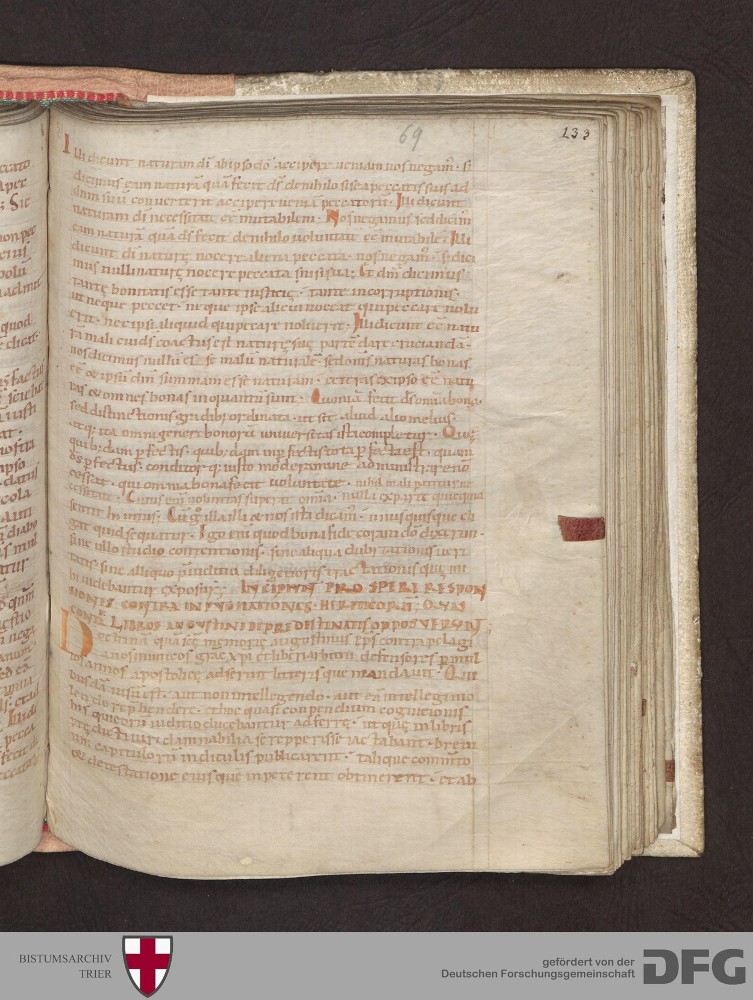 69
133
Illi dicunt naturam dī ab ipso dō accipere ueniam nos negam̄ · s;
dicimus eam naturā quā fecit dš de nihilo si se a peccatis suis ad
dnm suū conuerterit accipere uenia peccatorū · Illi dicunt
naturam dī necessitate eē mutabilem · Nos negamus sed dicim
eam naturā quā dš fecit de nihilo uoluntate eē mutabile · Illi
dicunt dī naturę nocere aliena peccata · nos negam̄ · s; dici
mus nulli naturę nocere peccata sua; Et dm̄ dicimus
tantę bonitatis esse tantę iusticię · tante incorruptionis ·
ut neque peccet · neque ipse alicui noceat qui peccare nolu
erit · nec ipsi aliquid qui peccare noluerit · Illi dicunt eē natu
rā mali cui dš coactus est naturę suę partē dare cruciandā ·
nos dicimus nullū eē malū naturale · sed oms naturas bonas
eē & ipsū dm̄ summam esse naturam · ceteras ex ipso eē natu
ras & omnes bonas in quantū sunt · Quoniā fecit dš omīa bona ·
sed distinctionis gradibus ordinata · ut sit aliud alio melius ·
atq; ita omni genere bonorū uniuersitas ista completur · Quę
quibusdam pfectis · quibusdam inpfectis tota pfecta est · quam
dš pfectus conditor q; iusto moderamine administrare non
cessat · qui omnia bona fecit uoluntate · nihil mali patitur ne
cessitate · Cuius enī uoluntas superat omīa · nulla ex parte quicquam
sentit inuitus · Cū g° illa illi & nos ista dicam̄ · unusquisque eli
gat quid sequatur · Ego enī quod bona fide coram dō dixerim ·
sine ullo studio contentionis · sine aliqua dubitationis ueri
tatis · sine aliquo pīudicio diligentioris tractationis quę mi
hi uidebantur exposui; INCIPIUNT PROSPERI RESPON
SIONES CONTRA INPUGNATIONES HERETICORŪ; QUAS
CONTRA LIBROS AUGUSTINI DE PREDESTINATIS OPPOSUERUNT
Doctrinā quā sēę memorię augustinus epš contra pelagi
anos inimicos gratię xpi et liberi arbitrii defensores p mul
tos annos apostolice adseruit litterisque mandauit · Qui
busdā uisū est · aut non intellegendo · aut eā intellegi no
lendo reprehendere · et hoc quasi conpendium cognitionis
his quorū iuditio ducebantur adferre · ut quę in libris
damnabilia se repperisse iactabant · breui
um capitulorū indiculis publicarent · talique commto
& detestatione eius que inpeterent obtinerent · et ab
BISTUMSARCHIV
TRIER
gefördert von der
Deutschen Forschungsgemeinschaft
DFG